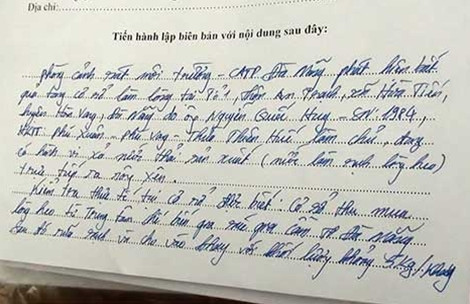 Địa chỉ:
Tiến hành lập biên bản với nội dung sau đây:
phòng cảnh sát môi trường - CATP Đà Nẵng phát hiện bắt
quả tang cơ sở làm lòng tại Tổ, thôn An Thạch, xã Hòa Tiến,
huyện Hòa Vang, Đà Nẵng do ông Nguyễn Quốc Huy - SN 1984,
HKTT Phú Xuân - Phú Vang - Thừa Thiên Huế làm chủ, đang
có hành vi xả nước thải sản xuất (nước làm sạch lòng heo)
trực tiếp ra sông Yên.
Kiểm tra thực tế tại cơ sở được biết: Cơ sở thu mua
lòng heo từ Trung tâm gia gia cầm TP Đà Nẵng
Sau đó rửa sạch và cho vào khay với khối lượng khoảng 5kg/khay